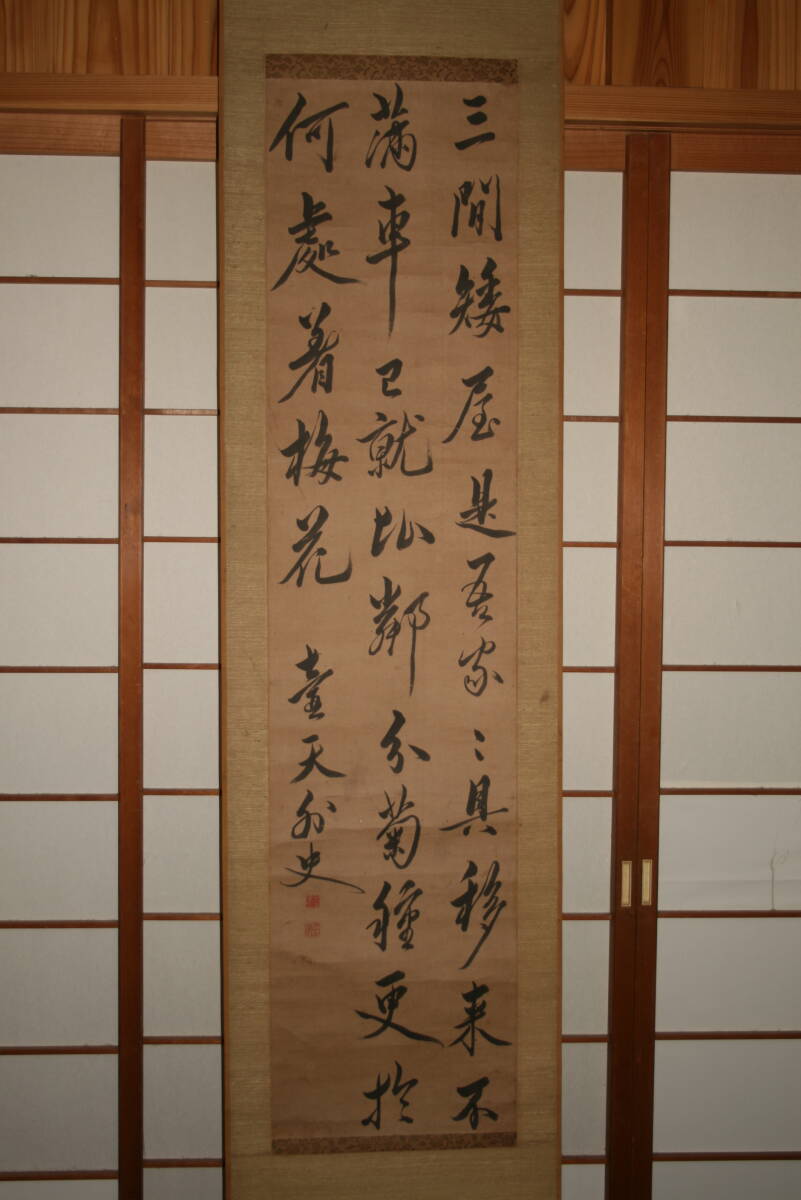 三間矮屋是吾家〻具移来不
满車已就比鄰分菊種更於
何處着梅花 臺天外史